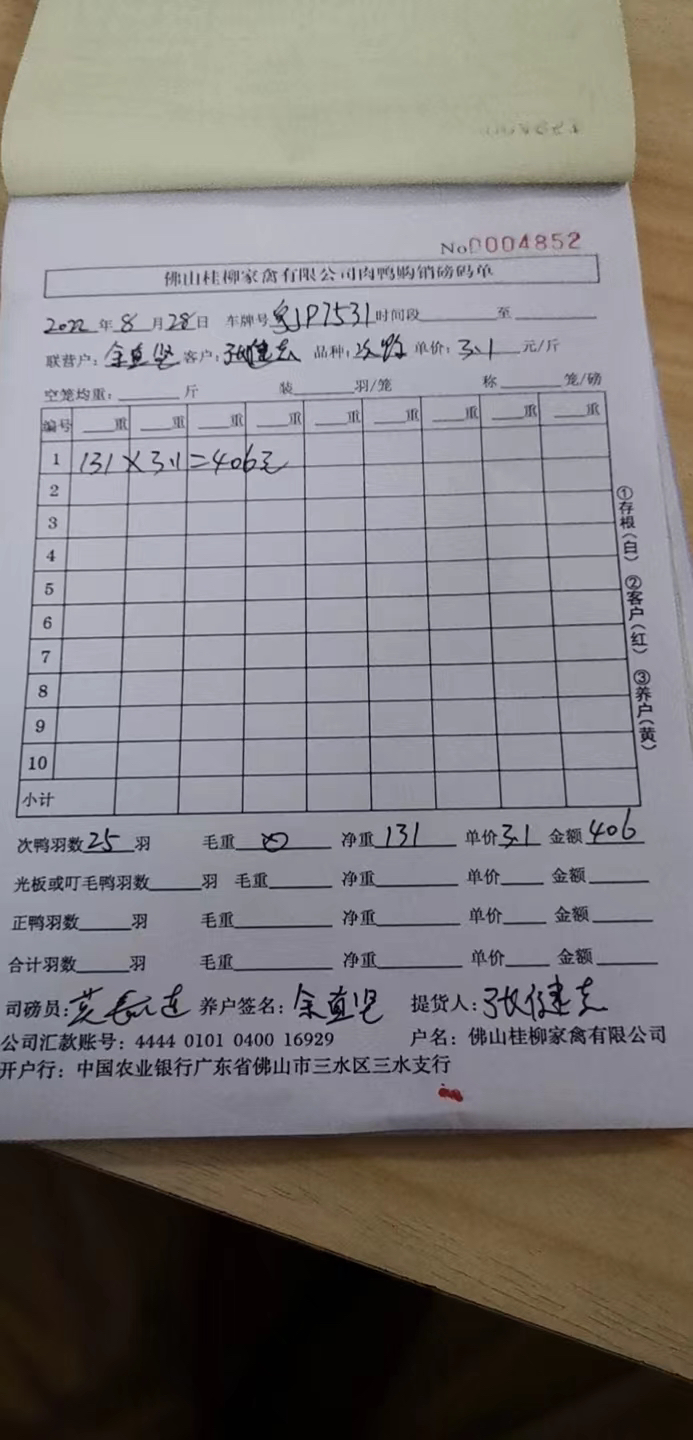 No0004852
佛山桂柳家禽有限公司肉鸭购销磅码单
2022年8月28日 车牌号 JP7531 时间段 至
联营户：余直坚 客户：张健志 品种：次鸭 单价：3.1 元/斤
空笼均重： 斤 装 羽/笼 称 笼/磅
编号 重 重 重 重 重 重 重 重 重
1 131×3.1=406元
2
3
4
5
6
7
8
9
10
小计
次鸭羽数25羽 毛重 净重131 单价3.1 金额406
光板或叮毛鸭羽数 羽 毛重 净重 单价 金额
正鸭羽数 羽 毛重 净重 单价 金额
合计羽数 羽 毛重 净重 单价 金额
司磅员： 养户签名：余直坚 提货人：张健志
公司汇款账号：4444 0101 0400 16929 户名：佛山桂柳家禽有限公司
开户行：中国农业银行广东省佛山市三水区三水支行
①存根（白） ②客户（红） ③养户（黄）